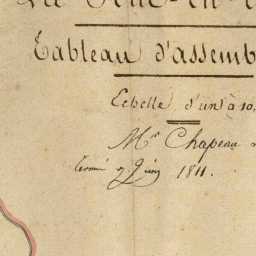 Tableau d'assemb
Echelle d'un à 10.
Mr Chapeau
Terminé 1811.